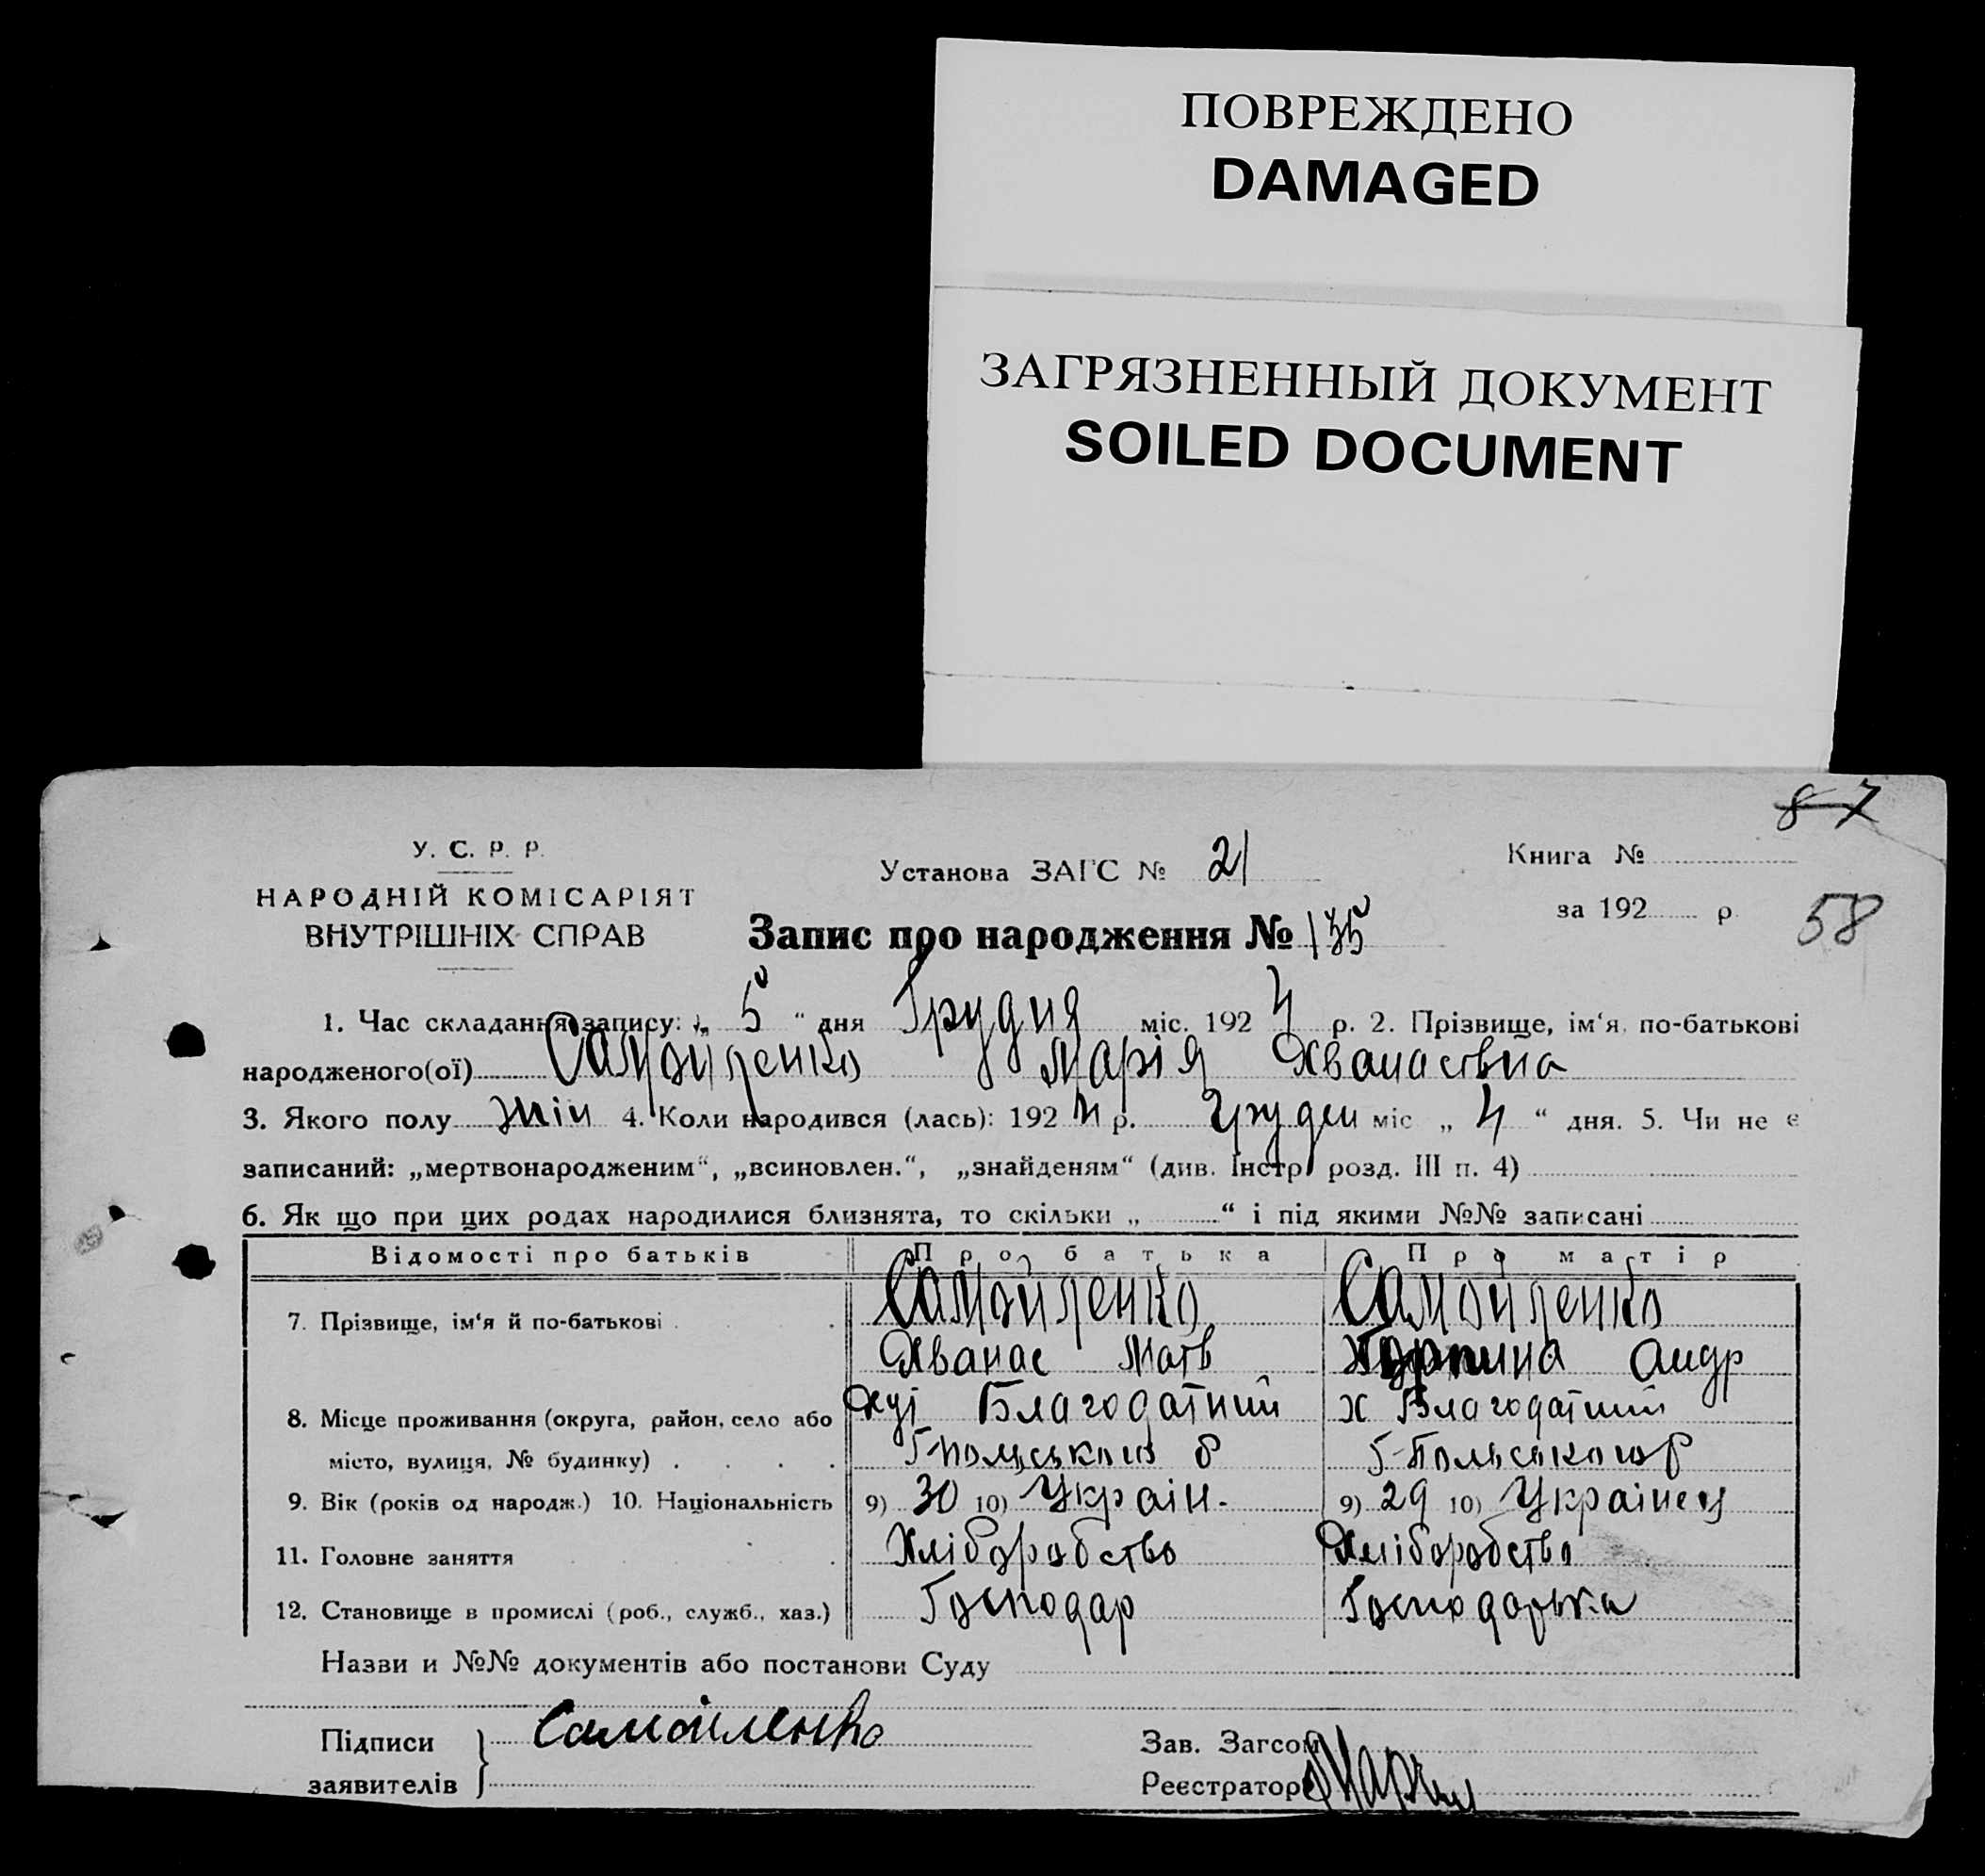 ПОВРЕЖДЕНО
DAMAGED
ЗАГРЯЗНЕННЫЙ ДОКУМЕНТ
SOILED DOCUMENT
8 7
У. С. Р. Р.
НАРОДНІЙ КОМІСАРІЯТ
ВНУТРІШНІХ СПРАВ
Установа ЗАГС № 21
Книга №
за 192 р.
58
Запис про народження № 135
1. Час складання запису: „ 5 “ дня Грудня міс. 192 4 р. 2. Прізвище, ім‘я, по-батькові
народженого(ої) Самойленко Марія Хванасівна
3. Якого полу жін 4. Коли народився (лась): 192 4 р. Груден міс „ 4 “ дня. 5. Чи не є
записаний: „мертвонародженим“, „всиновлен.“, „знайденям“ (див. Інстр. розд. III п. 4)
6. Як що при цих родах народилися близнята, то скільки „ “ і під якими №№ записані
Відомості про батьків Про батька Про матір
7. Прізвище, ім‘я й по-батькові Самойленко Самойленко
Хванас Матв Андр
8. Місце проживання (округа, район, село або Хут Благодатний х Благодатний
місто, вулиця, № будинку) Г-Польського р Г-Польського р
9. Вік (років од народж.) 10. Національність 9) 30 10) Україн. 9) 29 10) Українец
11. Головне заняття Хліборобство Хліборобство
12. Становище в промислі (роб., служб., хаз.) Господар Господарька
Назви и №№ документів або постанови Суду
Підписи заявителів } Самойленко
Зав. Загсом
Реєстратор